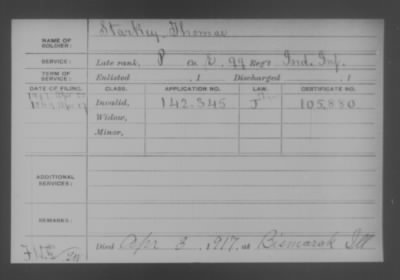 NAME OF SOLDIER: Starkey, Thomas
SERVICE: Late rank, P Co. E, 99 Reg't Ind. Inf.
TERM OF SERVICE: Enlisted , 1 Discharged , 1
DATE OF FILING. CLASS. APPLICATION NO. LAW. CERTIFICATE NO.
Invalid, 142.345 J 105,880
Widow,
Minor,
ADDITIONAL SERVICES:
REMARKS:
Died Apr 3, 1917, at Bismarak Ill